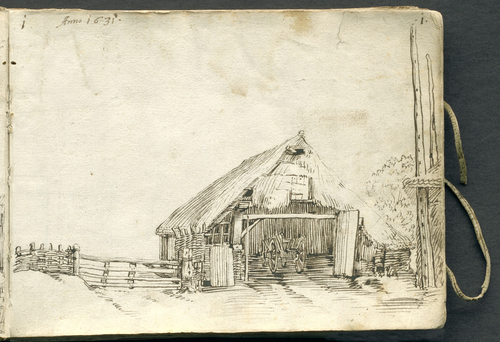 i
Anno 1631.
·1·